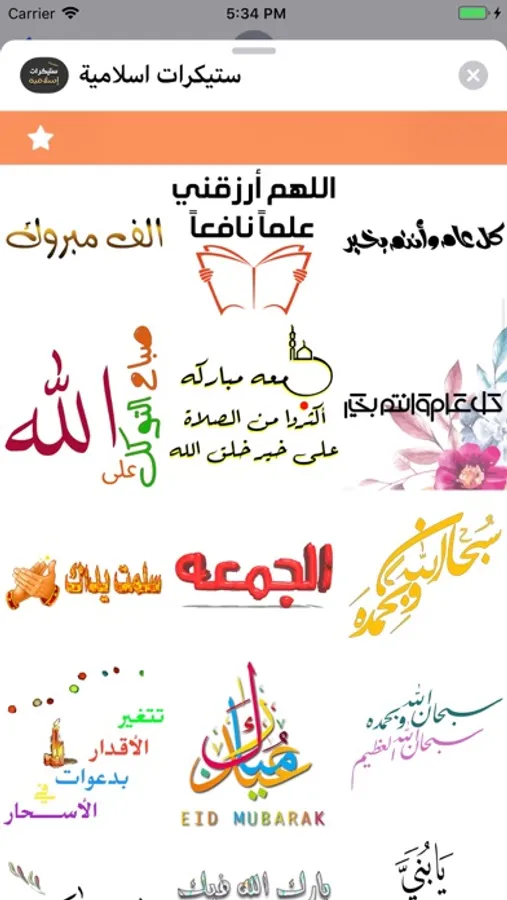 Carrier
5:34 PM
ستيكرات
إسلامية
ستيكرات اسلامية
كل عام وأنتم بخير
اللهم أرزقني
علماً نافعاً
الف مبروك
كل عام وانتم بخير
جمعه مباركه
أكثروا من الصلاة
على خير خلق الله
صباح التوكل
على
الله
سبحان الله
وبحمده
الجمعه
سلمت يداك
سبحان الله وبحمده
سبحان الله العظيم
عيدك مبارك
EID MUBARAK
تتغير
الأقدار
بدعوات
في
الأسـحار
يَا بُنَيَّ
بارك الله فيك